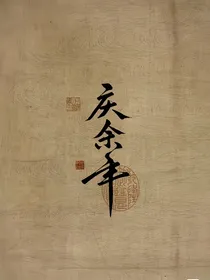 庆余年